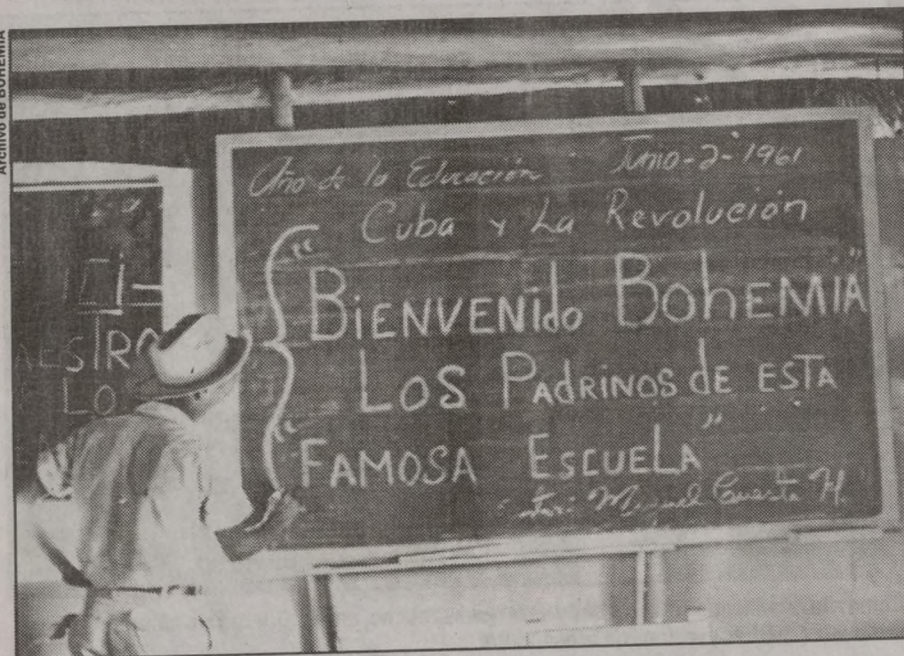 Archivo de BOHEMIA
Año de la Educación Junio-2-1961
Cuba y La Revolución
"BIENVENIdo BOhEMIA"
LOS PAdRINOS dE ESTA
"FAMOSA ESCUELA"
Miguel Cuesta H.
ESTRO
LO